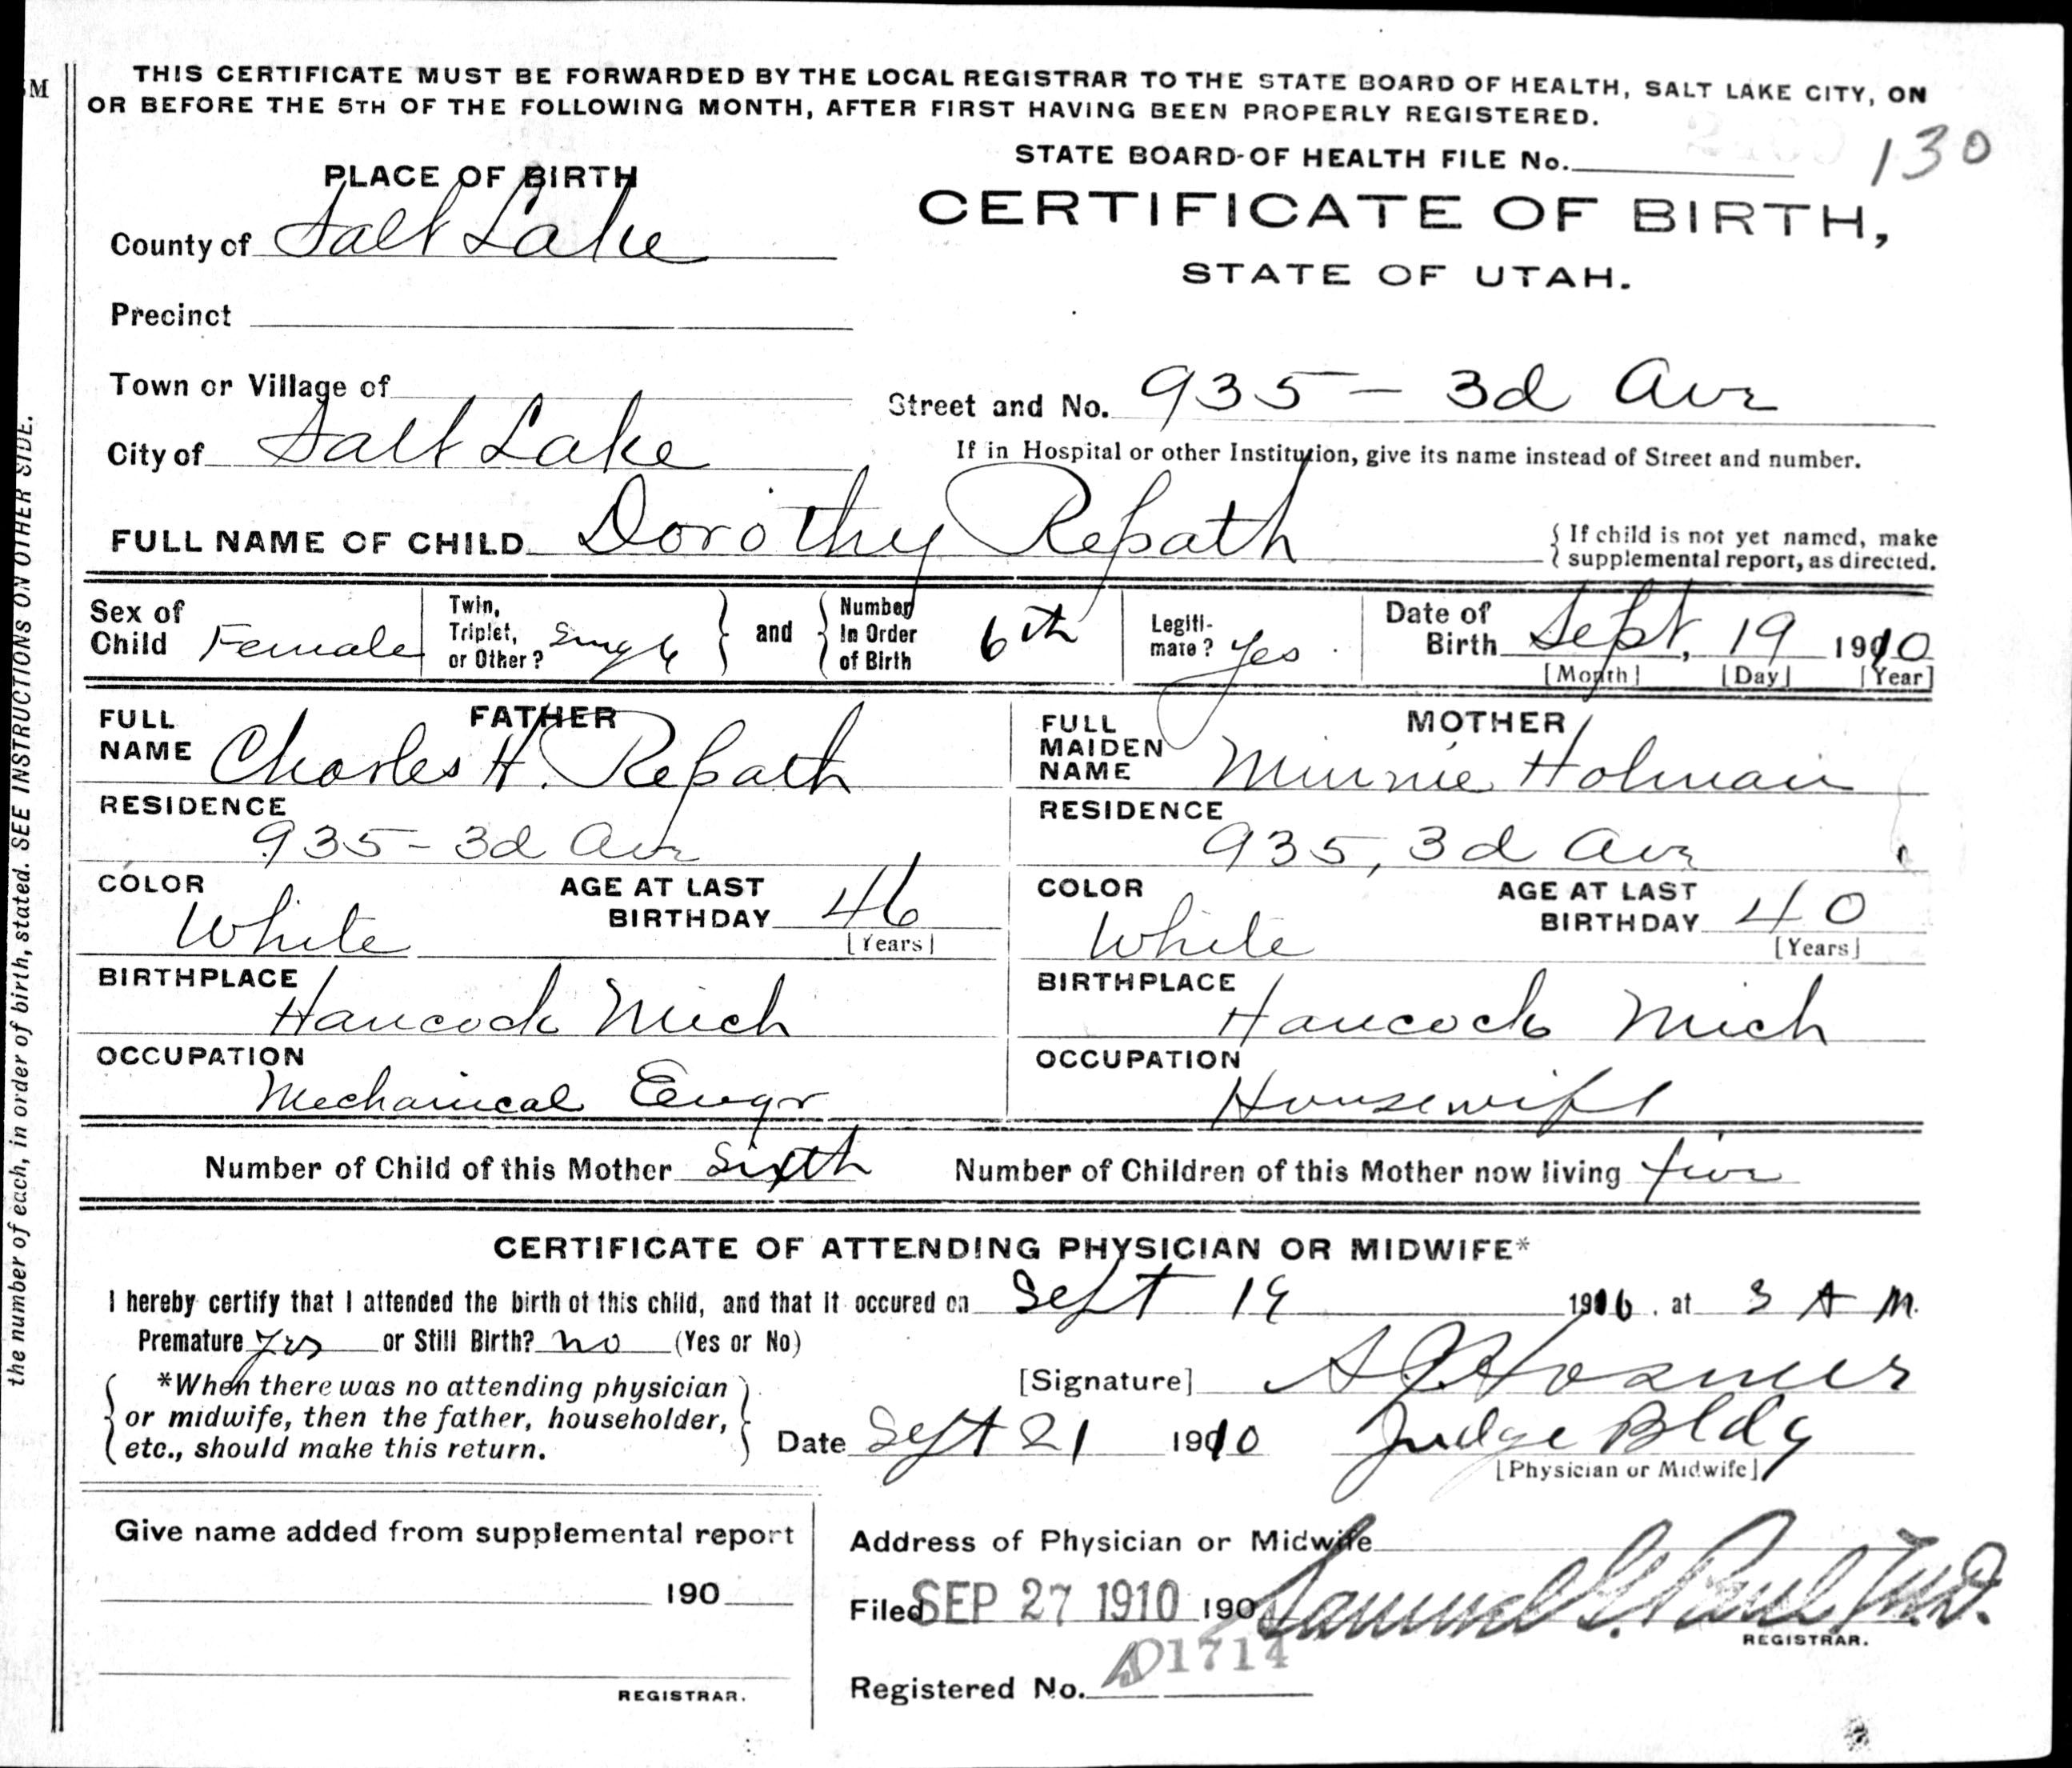 THIS CERTIFICATE MUST BE FORWARDED BY THE LOCAL REGISTRAR TO THE STATE BOARD OF HEALTH, SALT LAKE CITY, ON
OR BEFORE THE 5TH OF THE FOLLOWING MONTH, AFTER FIRST HAVING BEEN PROPERLY REGISTERED.
STATE BOARD OF HEALTH FILE No. 130
PLACE OF BIRTH
CERTIFICATE OF BIRTH,
STATE OF UTAH.
County of Salt Lake
Precinct
Town or Village of
Street and No. 935 - 3d Ave
City of Salt Lake
If in Hospital or other Institution, give its name instead of Street and number.
FULL NAME OF CHILD Dorothy Repath
{ If child is not yet named, make
{ supplemental report, as directed.
Sex of Child Female
Twin, Triplet, or Other? Single } and { Number In Order of Birth 6th
Legitimate? Yes
Date of Birth Sept, 19 1910
[Month] [Day] [Year]
FATHER
FULL NAME Charles H. Repath
RESIDENCE
935 - 3d Ave
COLOR White
AGE AT LAST BIRTHDAY 46
[Years]
BIRTHPLACE
Hancock Mich
OCCUPATION
Mechanical Engr
MOTHER
FULL MAIDEN NAME Minnie Holman
RESIDENCE
935, 3d Ave
COLOR White
AGE AT LAST BIRTHDAY 40
[Years]
BIRTHPLACE
Hancock Mich
OCCUPATION
Housewife
Number of Child of this Mother Sixth Number of Children of this Mother now living five
CERTIFICATE OF ATTENDING PHYSICIAN OR MIDWIFE*
I hereby certify that I attended the birth of this child, and that it occured on Sept 19 1910, at 3 A M.
Premature Yes or Still Birth? no (Yes or No)
*When there was no attending physician
or midwife, then the father, householder,
etc., should make this return.
[Signature] Hosmer
Date Sept 21 1910 Judge Bldg
[Physician or Midwife]
Give name added from supplemental report
190
REGISTRAR.
Address of Physician or Midwife
Filed SEP 27 1910 190 Samuel G. Paul, M.D.
REGISTRAR.
Registered No. 01714
the number of each, in order of birth, stated. SEE INSTRUCTIONS ON OTHER SIDE.